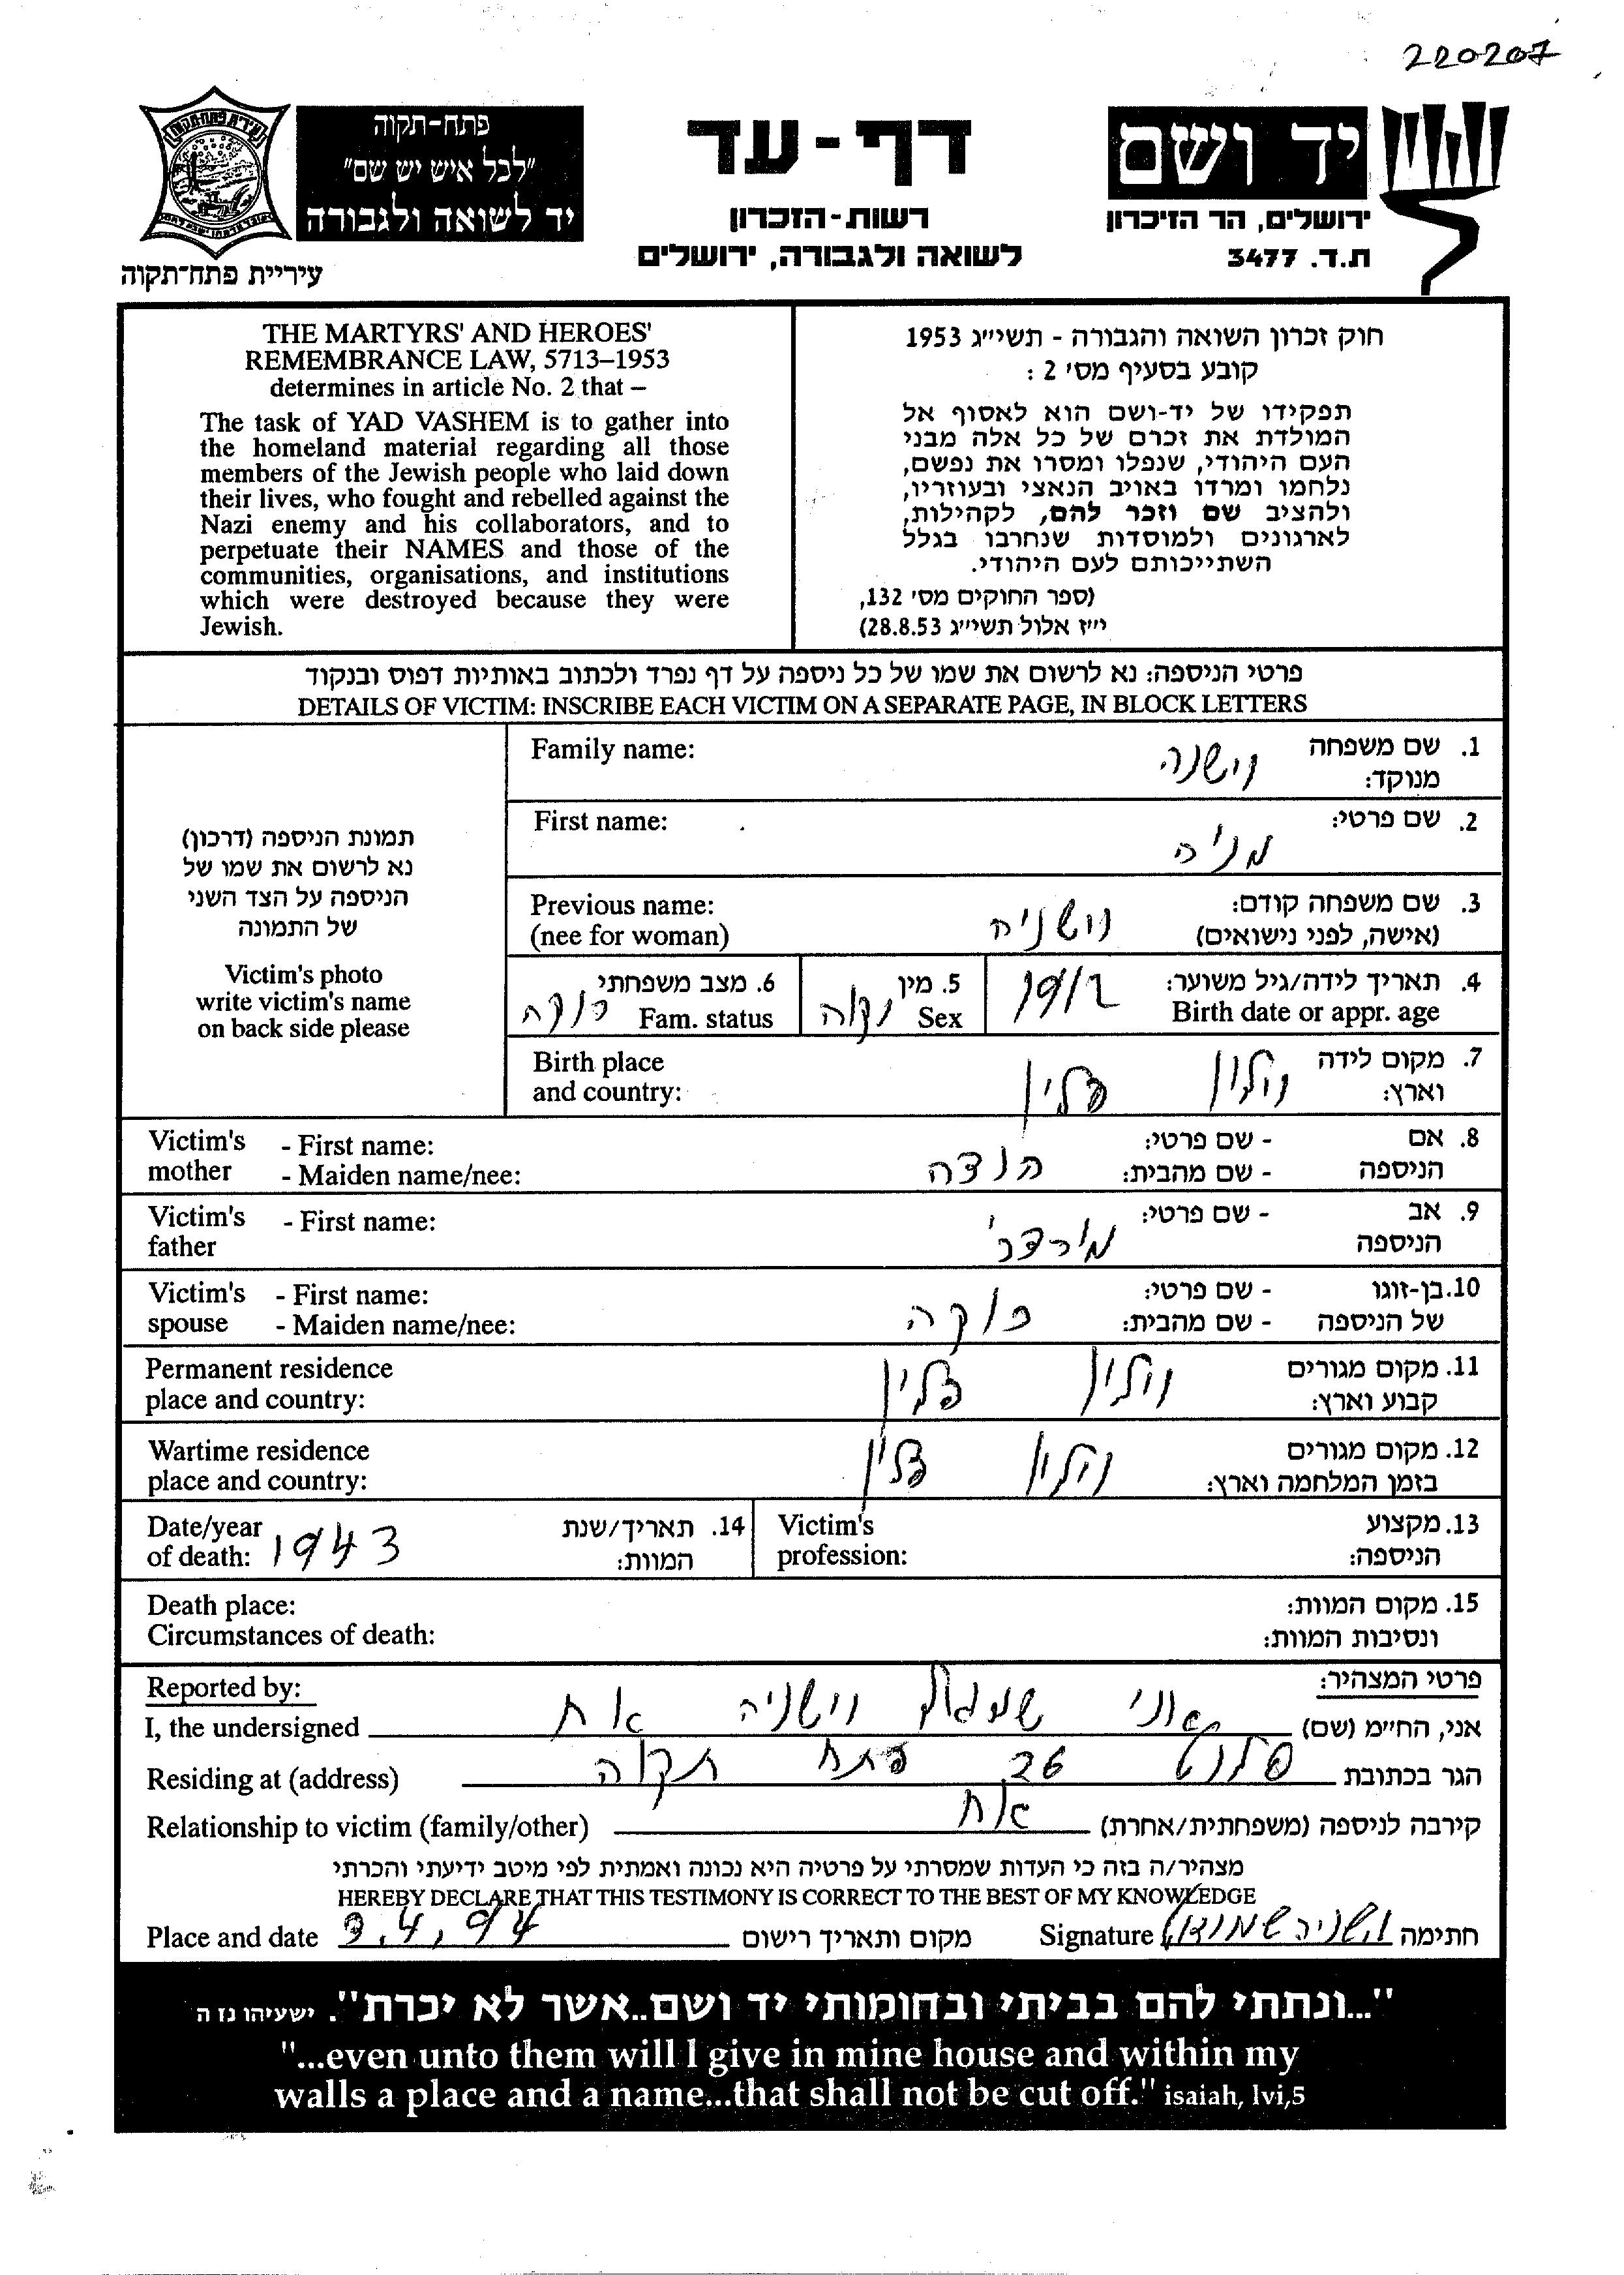 220207
פתח-תקוה
"לכל איש יש שם"
יד לשואה ולגבורה
עיריית פתח-תקוה
דף - עד
רשות-הזכרון
לשואה ולגבורה, ירושלים
יד ושם
ירושלים, הר הזיכרון
ת.ד. 3477
THE MARTYRS' AND HEROES'
REMEMBRANCE LAW, 5713–1953
determines in article No. 2 that –
The task of YAD VASHEM is to gather into
the homeland material regarding all those
members of the Jewish people who laid down
their lives, who fought and rebelled against the
Nazi enemy and his collaborators, and to
perpetuate their NAMES and those of the
communities, organisations, and institutions
which were destroyed because they were
Jewish.
חוק זכרון השואה והגבורה - תשי״ג 1953
קובע בסעיף מס׳ 2 :
תפקידו של יד-ושם הוא לאסוף אל
המולדת את זכרם של כל אלה מבני
העם היהודי, שנפלו ומסרו את נפשם,
נלחמו ומרדו באויב הנאצי ובעוזריו,
ולהציב שם וזכר להם, לקהילות,
לארגונים ולמוסדות שנחרבו בגלל
השתייכותם לעם היהודי.
(ספר החוקים מס׳ 132,
י״ז אלול תשי״ג 28.8.53)
פרטי הניספה: נא לרשום את שמו של כל ניספה על דף נפרד ולכתוב באותיות דפוס ובנקוד
DETAILS OF VICTIM: INSCRIBE EACH VICTIM ON A SEPARATE PAGE, IN BLOCK LETTERS
תמונת הניספה (דרכון)
נא לרשום את שמו של
הניספה על הצד השני
של התמונה
Victim's photo
write victim's name
on back side please
Family name: וישנה 1. שם משפחה
מנוקד:
First name: מניה 2. שם פרטי:
Previous name: וישניה 3. שם משפחה קודם:
(nee for woman) (אישה, לפני נישואים)
6. מצב משפחתי 5. מין 4. תאריך לידה/גיל משוער:
Fam. status Sex נקוה 1912 Birth date or appr. age
Birth place 7. מקום לידה
and country: ווילון וארץ:
Victim's - First name: - שם פרטי: 8. אם
mother - Maiden name/nee: הנדה - שם מהבית: הניספה
Victim's - First name: - שם פרטי: 9. אב
father מורדכי הניספה
Victim's - First name: - שם פרטי: 10. בן-זוגו
spouse - Maiden name/nee: רווקה - שם מהבית: של הניספה
Permanent residence 11. מקום מגורים
place and country: ווילון קבוע וארץ:
Wartime residence 12. מקום מגורים
place and country: ווילון בזמן המלחמה וארץ:
Date/year 14. תאריך/שנת Victim's 13. מקצוע
of death: 1943 המוות: profession: הניספה:
Death place: 15. מקום המוות:
Circumstances of death: ונסיבות המוות:
Reported by: פרטי המצהיר:
I, the undersigned אני שמואל וישניה אח אני, החי״מ (שם)
Residing at (address) סלנט 26 פתח תקוה הגר בכתובת
Relationship to victim (family/other) אח קירבה לניספה (משפחתית/אחרת)
מצהיר/ה בזה כי העדות שמסרתי על פרטיה היא נכונה ואמתית לפי מיטב ידיעתי והכרתי
HEREBY DECLARE THAT THIS TESTIMONY IS CORRECT TO THE BEST OF MY KNOWLEDGE
Place and date 3.4.94 מקום ותאריך רישום Signature וישניה שמואל חתימה
"...ונתתי להם בביתי ובחומותי יד ושם..אשר לא יכרת". ישעיהו נז ה
"...even unto them will I give in mine house and within my
walls a place and a name...that shall not be cut off." isaiah, lvi,5